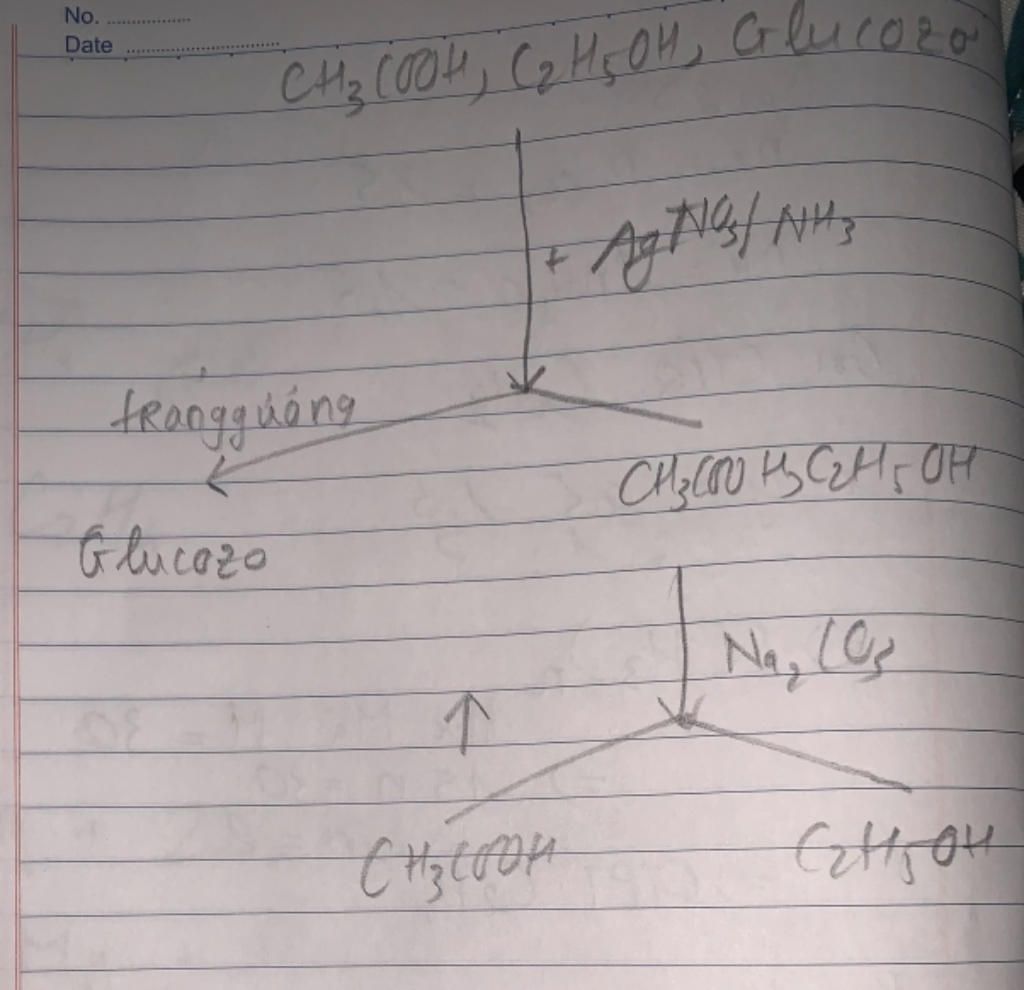 No. ....................
Date ....................................
CH₃COOH, C₂H₅OH, Glucozơ
+ AgNO₃/ NH₃
tráng gương
CH₃COOH, C₂H₅OH
Glucozo
Na₂CO₃
↑
CH₃COOH
C₂H₅OH